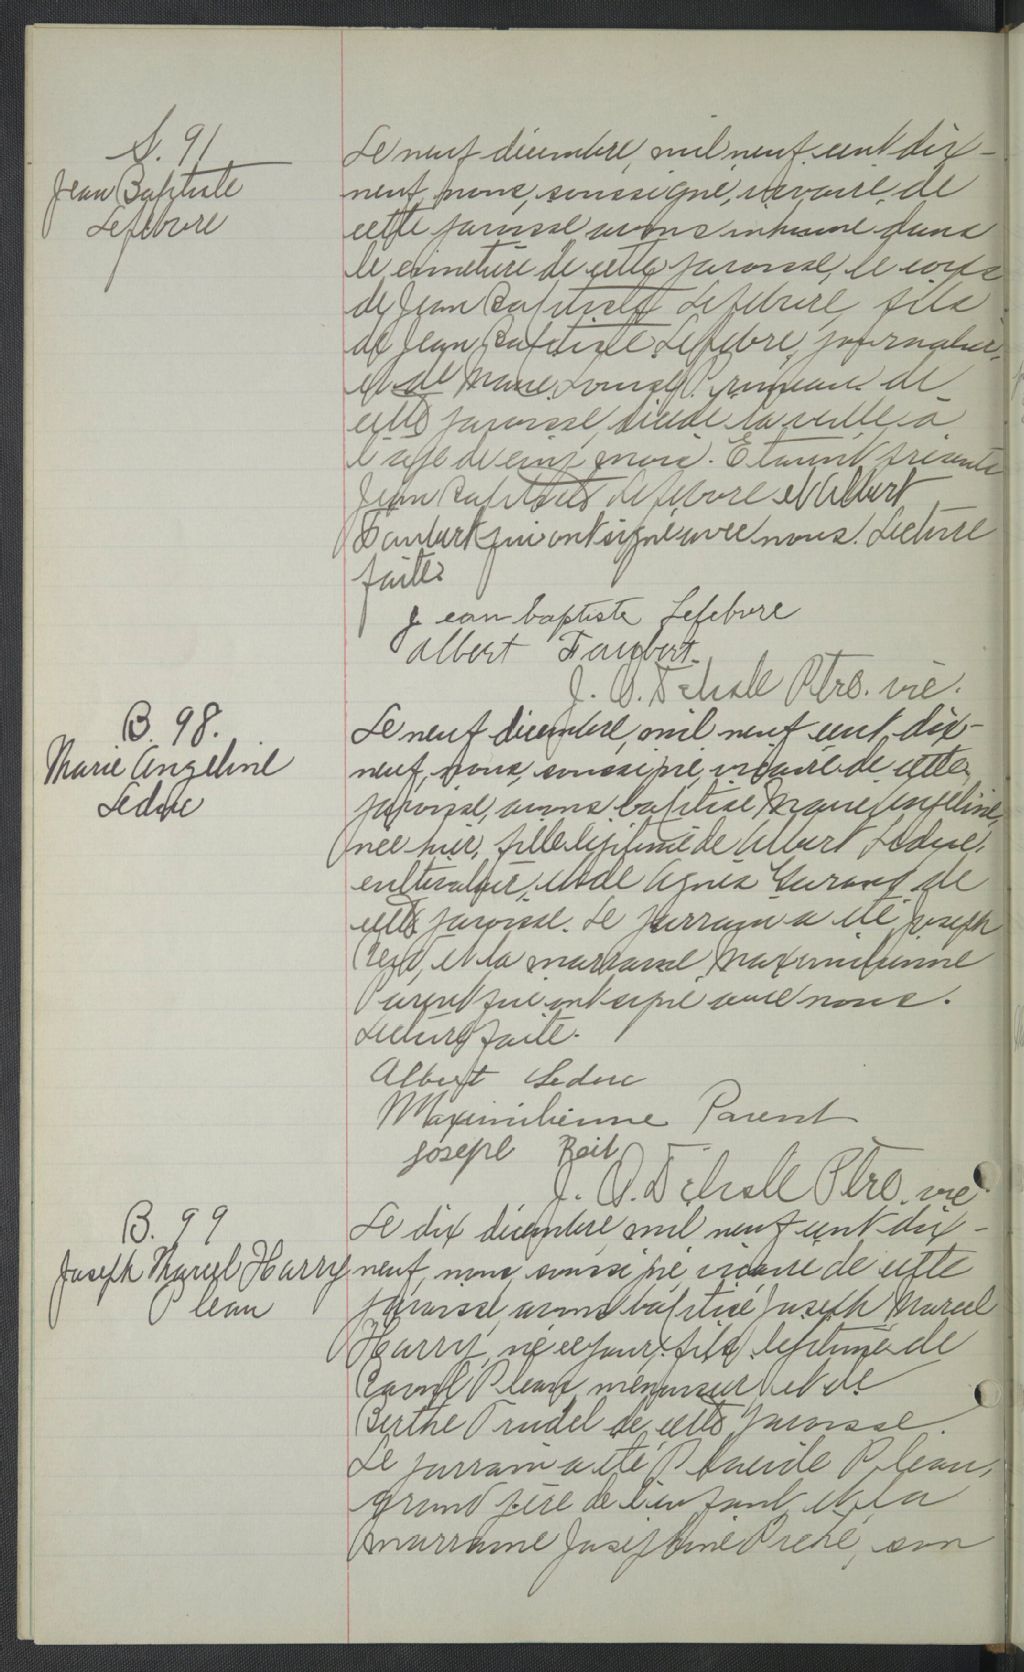 S. 91
Jean Baptiste
Lefebvre
Le neuf décembre, mil neuf cent dix-
neuf, nous, soussigné, vicaire, de
cette paroisse avons inhumé dans
le cimetière de cette paroisse, le corps
de Jean Baptiste Lefebvre, fils
de Jean Baptiste Lefebvre, journalier,
et de Marie Louise Primeau de
cette paroisse, décédé la veille, à
l'âge de cinq mois. Étaient présents
Jean Baptiste Lefebvre et Albert
Faubert qui ont signé avec nous. Lecture
faite.
Jean baptiste Lefebvre
Albert Faubert.
J. O. Ptre. vic.
B. 98.
Marie Angeline
Leduc
Le neuf décembre, mil neuf cent dix-
neuf, nous, soussigné, vicaire de cette
paroisse, avons baptisé Marie Angeline,
née hier, fille légitime de Albert Leduc,
cultivateur, et de Agnès de
cette paroisse. Le parrain a été Joseph
et la marraine Maximilienne
Parent qui ont signé avec nous.
Lecture faite.
Albert Leduc
Maximilienne Parent
Joseph
J. O. Ptre. vic.
B. 99
Joseph Marcel Harry
Pleau
Le dix décembre, mil neuf cent dix-
neuf, nous, soussigné, vicaire de cette
paroisse, avons baptisé Joseph Marcel
Harry, né ce jour, fils légitime de
Pleau, menuisier, et de
Berthe Trudel de cette paroisse.
Le parrain a été Pleau,
grand père de l'enfant, et la
marraine Joséphine son